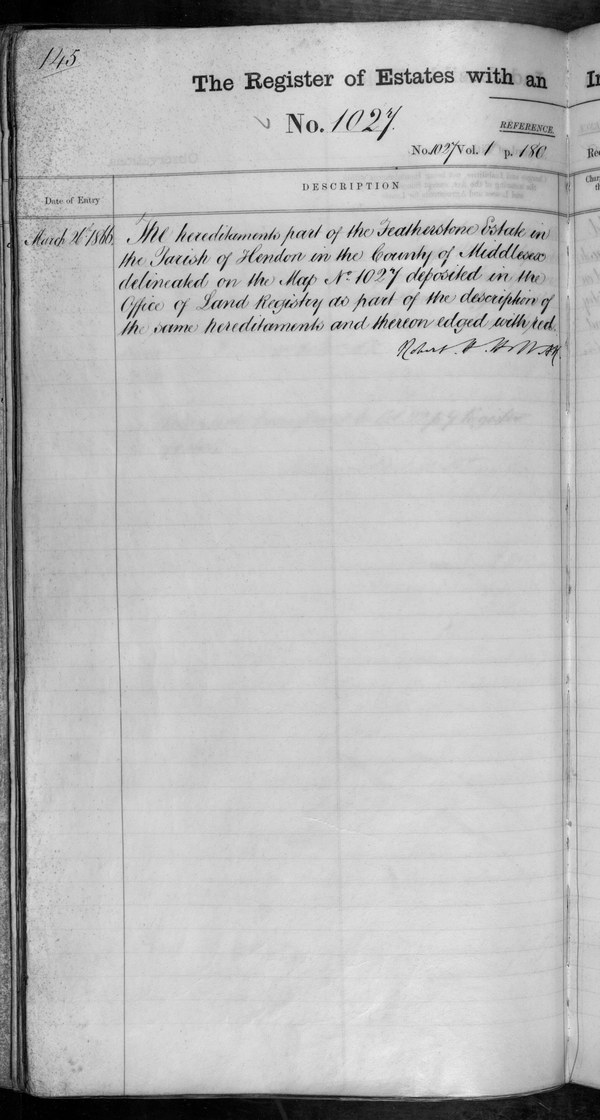 145
The Register of Estates with an
No. 1027.
REFERENCE.
No. 1027 Vol. 1 p. 180
Date of Entry
DESCRIPTION
March 26th 1866
The hereditaments part of the Featherstone Estate in
the Parish of Hendon in the County of Middlesex
delineated on the Map No. 1027 deposited in the
Office of Land Registry as part of the description of
the same hereditaments and thereon edged with red.
Robert H. Holt